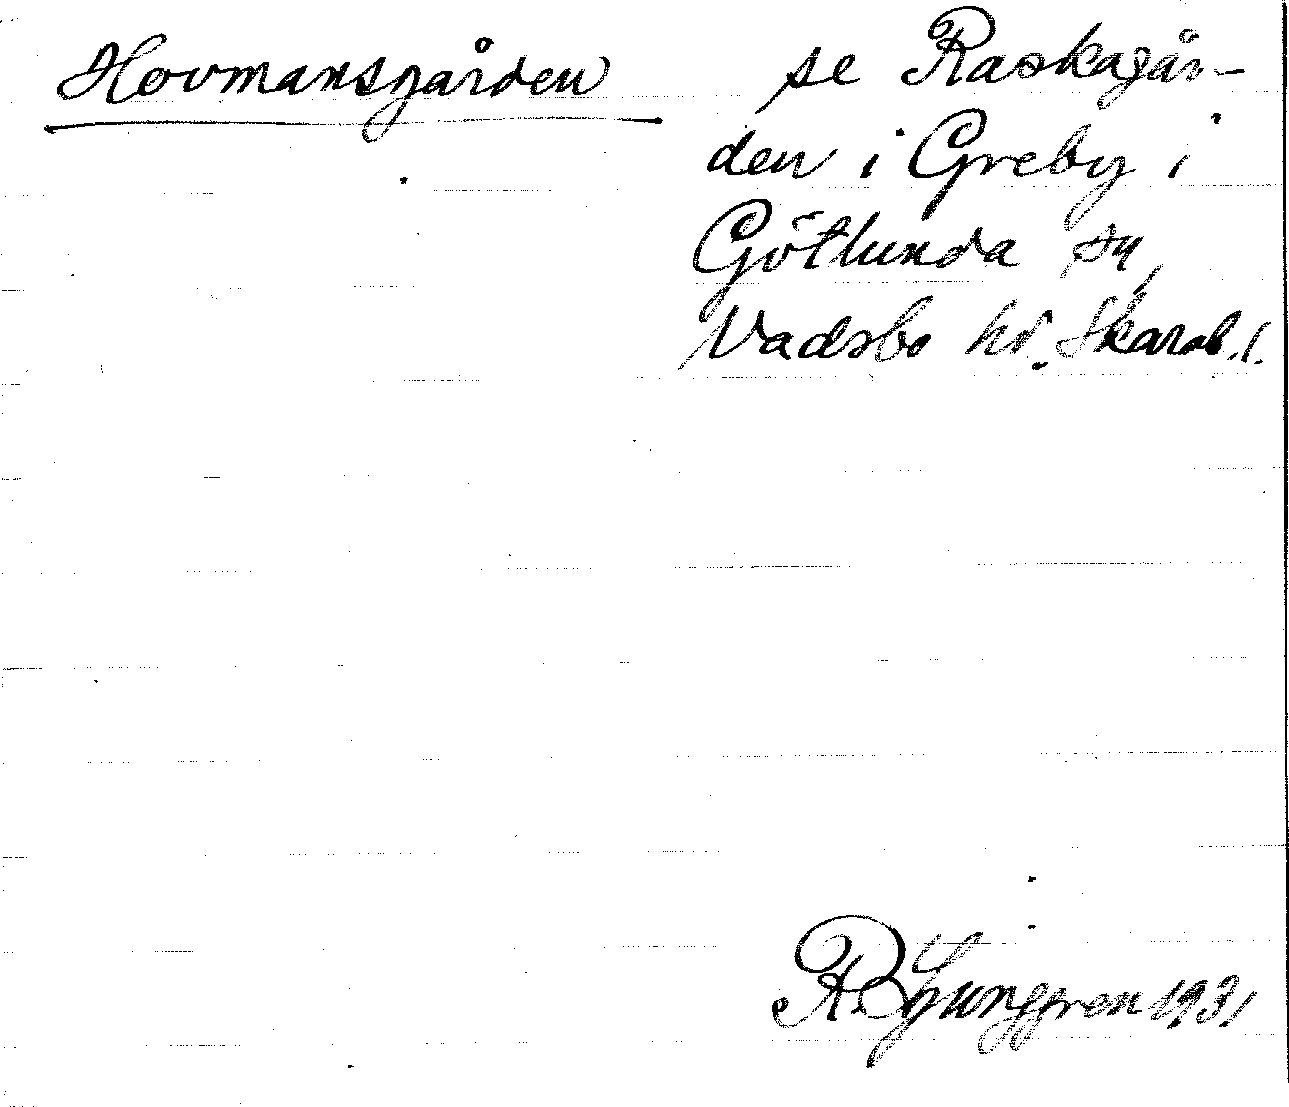 Hovmansgården se Raskagår-
den i Greby i
Götlunda sn,
Vadsbo hd. Skarab. l.
R Ljunggren 1931